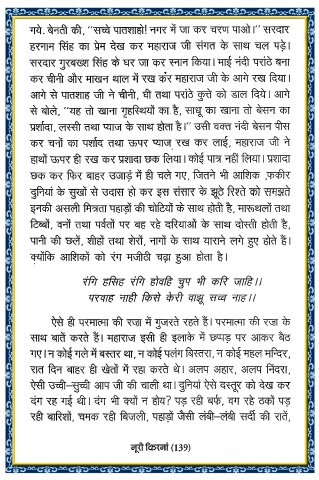 गये. बेनती की, ‘‘सच्चे पातशाहो! नगर में जा कर चरण पाओ।’’ सरदार
हरनाम सिंह का प्रेम देख कर महाराज जी संगत के साथ चल पड़े।
सरदार गुरबख्श सिंह के घर जा कर स्नान किया। माई नंदी परांठे बना
कर चीनी और माखन थाल में रख कर महाराज जी के आगे रख दिया।
आगे से पातशाह जी ने चीनी, घी तथा परांठे कुत्ते को डाल दिये। आगे
से बोले, ‘‘यह तो खाना गृहस्थियों का है, साधू का खाना तो बेसन का
प्रर्शादा, लस्सी तथा प्याज के साथ होता है।’’ उसी वक्त नंदी बेसन पीस
कर चनों का पर्शादा तथा ऊपर प्याज् रख कर लाई, महाराज जी ने
हाथों ऊपर ही रख कर प्रशादा छक लिया। कोई पात्र नहीं लिया। प्रशादा
छक कर फिर बाहर उजाड़ों में ही चले गए, जितने भी आशिक ,फकीर
दुनियां के सुखों से उदास हो कर इस संसार के झूठे रिश्ते को समझते
इनकी असली मित्रता पहाड़ों की चोटियों के साथ होती है, मारूथलों तथा
टिब्बों, वनों तथा पर्वतों पर बह रहे दरियाओं के साथ दोस्ती होती है,
पानी की छलें, शीहों तथा शेरों, नागों के साथ याराने लगे हुए होते हैं।
क्योंकि आशिकों को रंग मजीठी चढ़ा हुआ होता है।
रंगि हसिह रंगि होवहि चुप भी करि जाहि।।
परवाह नाही किसे केरी वाझू सच्च नाह।।
ऐसे ही परमात्मा की रजा में गुजरते रहते हैं। परमात्मा की रजा के
साथ बातें करते हैं। महाराज इसी ही इलाके में छप्पड़ पर आकर बैठ
गए। न कोई गले में बस्तर था, न कोई पलंग बिस्तरा, न कोई महल मन्दिर,
रात दिन बाहर ही खेतों में रहा करते थे। अलप अहार, अलप निंदरा,
ऐसी उच्ची-सुच्ची आप जी की चाली था। दुनियां ऐसे दस्तूर को देख कर
दंग रह गई थी। दंग भी क्यों न होय? पड़ रही बर्फ, वग रहे ठकों पड़
रही बारिशों, चमक रही बिजली, पहाड़ों जैसी लंबी-लंबी सर्दी की रातें,
नूरी किरनां (139)